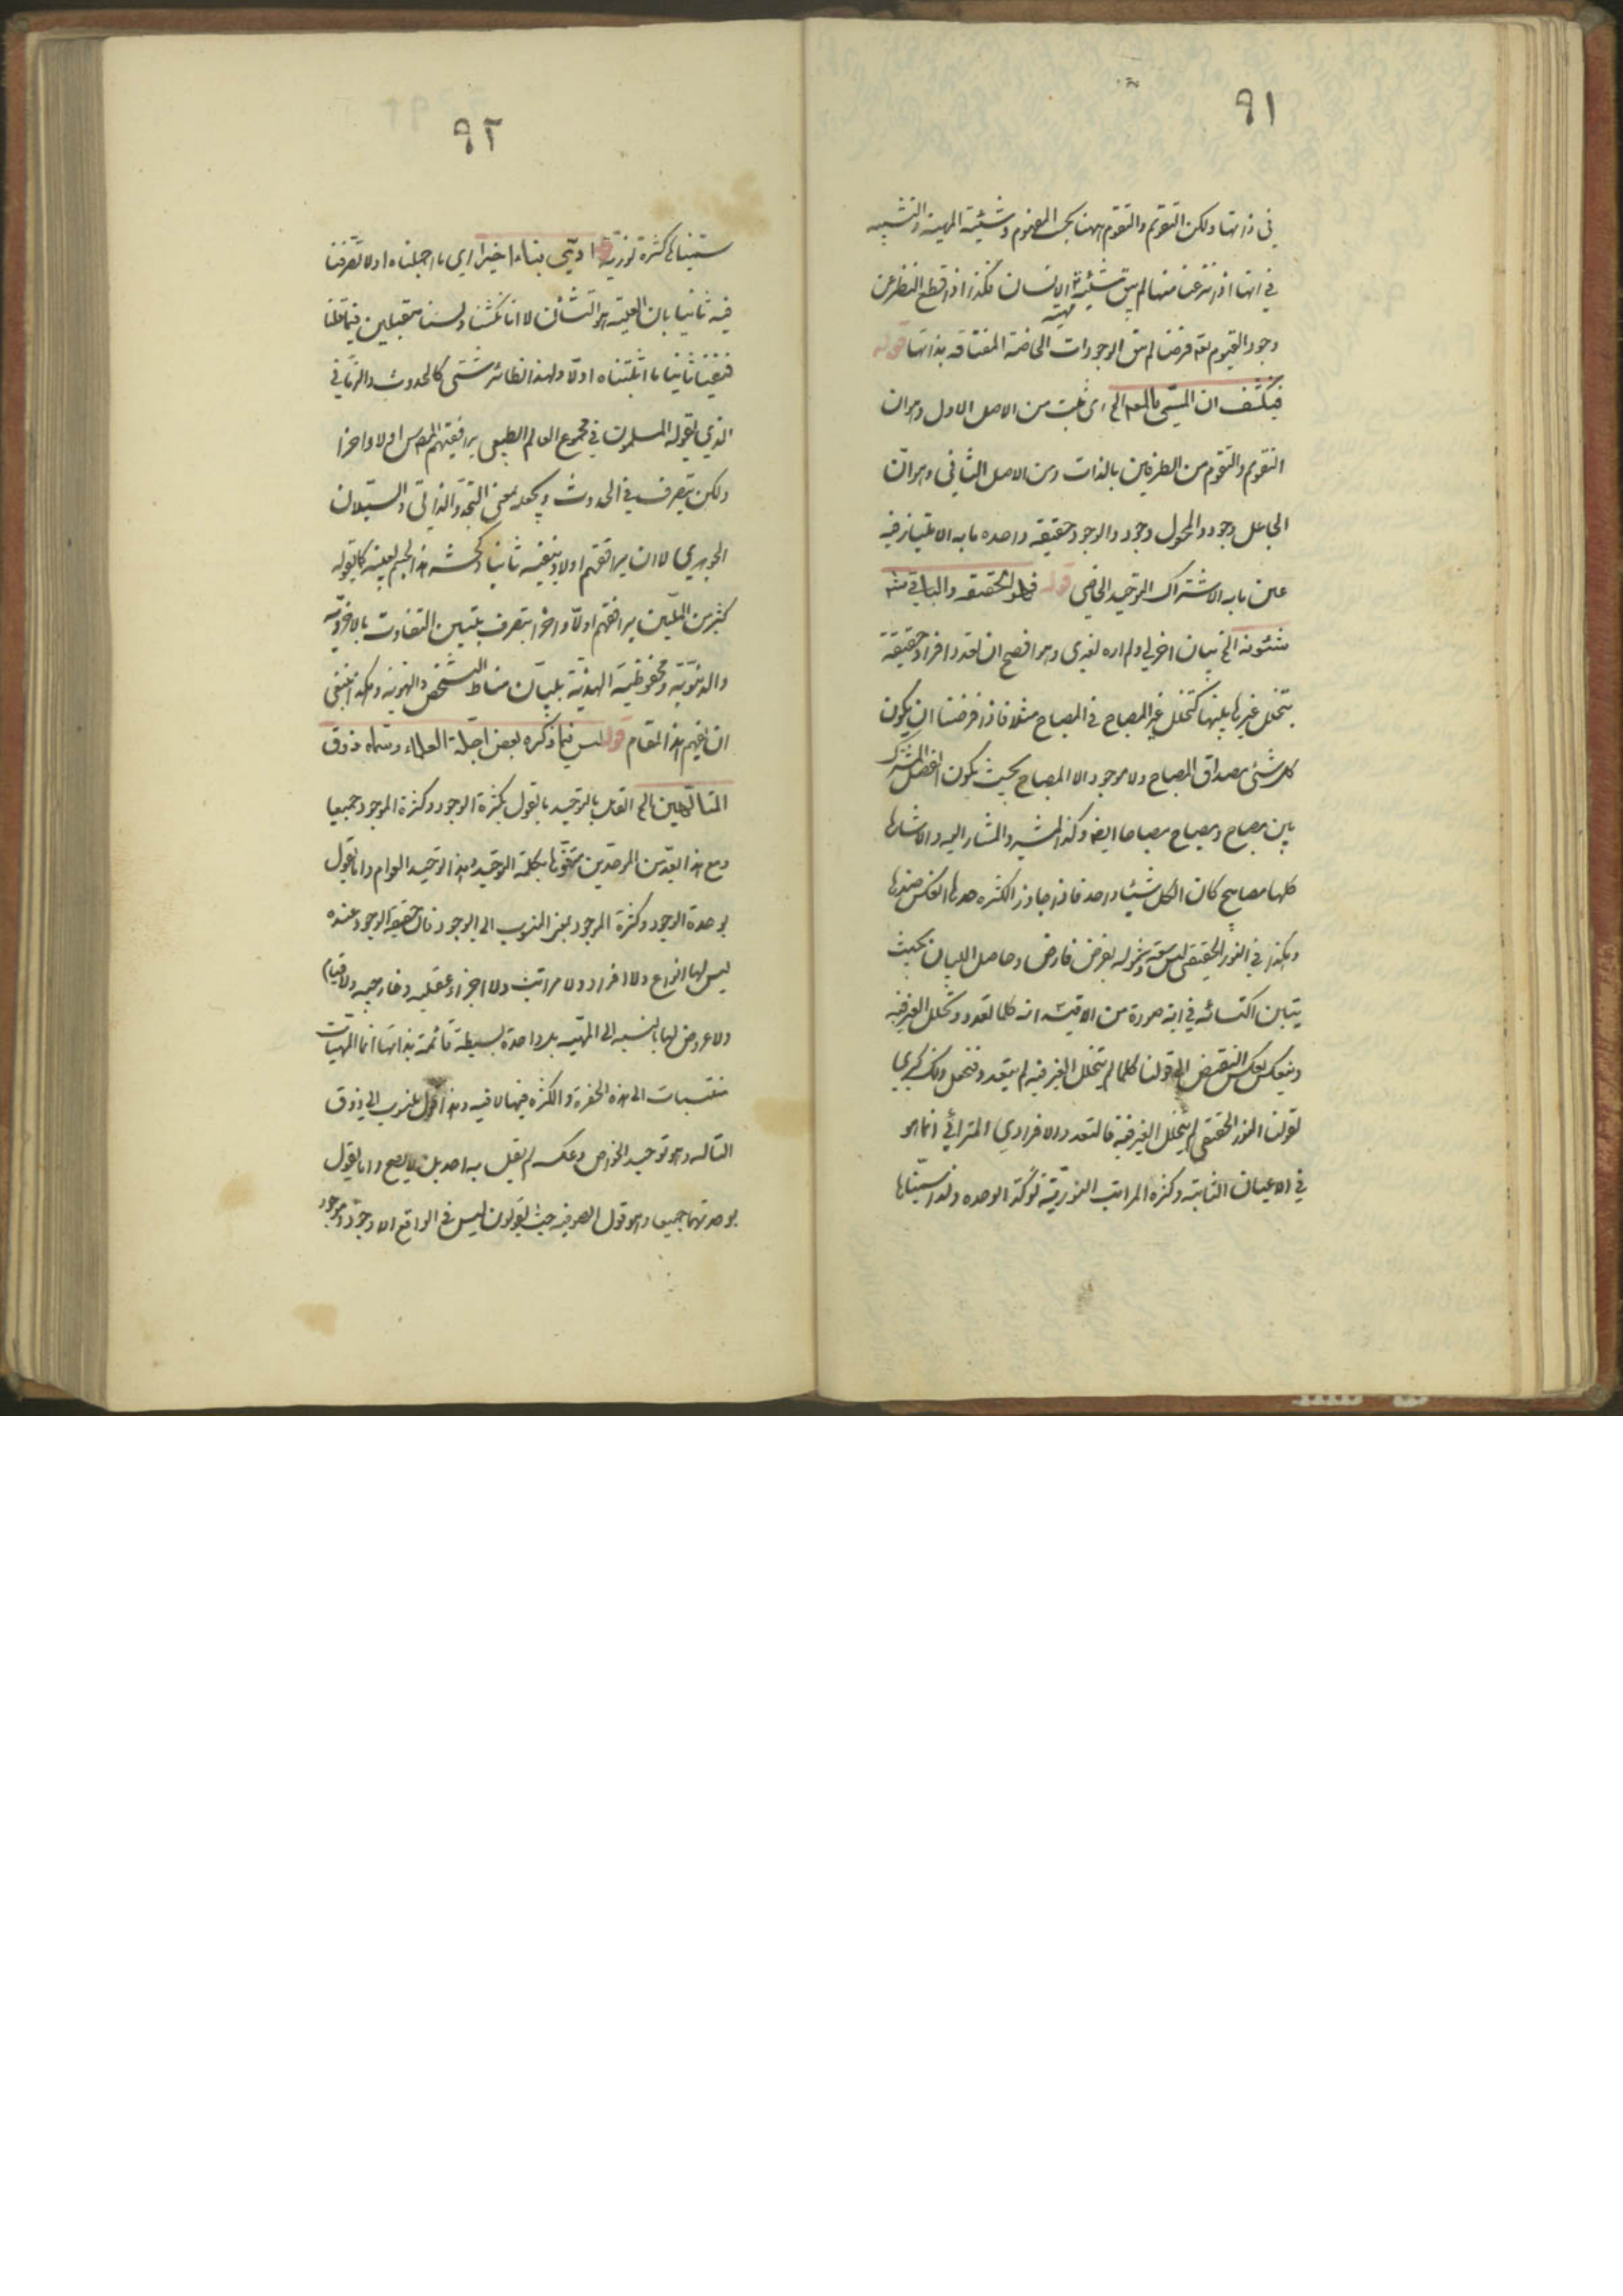 ٩١
في ذاتها ولكن التقويم والتقوم ههنا بحسب المفهوم وشيئية المهية والتشبيه
في انها اذا نزعنا منها لم يبق شيئية مهية الانسان فكذا اذا قطع النظر عن
وجود القيوم تعه فرضا لم يبق الوجودات الخاصة المفتاقه بذاتها قوله
فينكشف ان المسمى بالمعه الخ اى ثبت من الاصل الاول وهوان
التقويم والتقوم من الطرفين بالذات ومن الاصل الثاني وهوان
الجاعل وجود والمجعول وجود والوجود حقيقه واحده مابه الامتياز فيه
عين مابه الاشتراك التوحيد الخاصي قوله فهو الحقيقه والباقي
شئونه الخ بيان اخر لي ولم اره لغيرى وهو افصح ان تعدد افراد حقيقة
بتخلل غيرها بينها كتخلل غير المصباح في المصباح مثلا فاذا فرضنا ان يكون
كل شئ مصداق المصباح ولا موجود الا المصباح بحيث يكون الفصل المشترك
بين مصباح ومصباح مصباحا ايضا وكذا المشير والمشار اليه والاشارة
كلها مصابيح كان الكل شيئا واحدا فاذا جاوز الكثره حدها انعكس ضدها
وهكذا في النور الحقيقى ليس سعته وشموله بفرض فارض وحاصل البيان بحيث
يتبان اكتسائه في اية صورة من الاقيسه انه كلما تعدد وتخلل الغير فيه
وينعكس بعكس النقيض الى قولنا كلما لم يتخلل الغير فيه لم يتعدد فنجعل ذلك كبرى
لقولنا النور الحقيقى لم يتخلل الغير فيه فالتعدد الافرادي المترائي انما هو
في الاعيان الثابته وكثره المراتب النوريّة تؤكد الوحده ولذا سميناها
٩٢
سميناها كثرة نورية قوله اديّى بناء اخيرا اي ما اجملناه اولا تصرفنا
فيه ثانيا بان العلية هو التشأن لا انا نكثنا ولسنا متقبلين فيما قلنا
فنفينا ثانيا ما اثبتناه اولا ولهذا نظائر شتى كالحدوث الزماني
الذي يقوله المسلمون في مجموع العالم الطبيعى يوافقهم المص اولا واخرا
ولكن يتصرف في الحدوث ويجعله بمعنى التجدد الذاتى والسيلان
الجوهري لا ان يوافقهم اولا وينفيه ثانيا وكحشر هذا الجسم بعينه كما يقوله
كثير من المليين يوافقهم اولا واخرا بتصرف بتبيين التفاوت بالاخرويّه
والدنيويّة ومحفوظية الهذيّة بتبيان مناط التشخص والهويه وهكذا ينبغى
ان يفهم هذا المقام قوله ليس فيما ذكره بعض اجلة العلماء وسماه ذوق
المتألهين الخ القائل بالتوحيد ما يقول بكثرة الوجود وكثرة الموجود جميعا
ومع هذا يعد من الموحدين متفوّها بكلمة التوحيد وهذا توحيد العوام واما يقول
بوحدة الوجود وكثرة الموجود بمعنى المنسوب الى الوجود فان حقيقة الوجود عنده
ليس لها انواع ولا افراد ولا مراتب ولا اجزاء عقليه وخارجيه ولا قيام
ولا عروض لها بالنسبه الى المهيه بل واحدة بسيطة قائمة بذاتها انما المهيات
منتسبات الى هذه الحضرة والكثره فيها لا فيه وهذا القول منسوب الى ذوق
التاله وهو توحيد الخواص وعكسه لم يقل به احد بل لا يصح واما يقول
بوحدتهما جميعا وهو قول الصوفيه حيث يقولون ليس في الواقع الا وجود وموجود